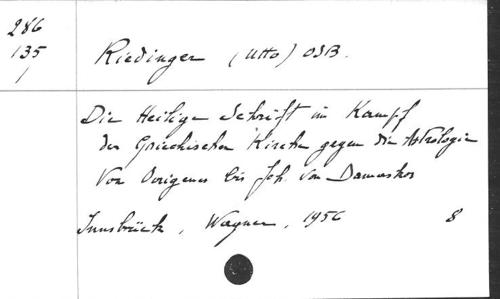 286
135
/
Riedinger (Utto) OSB.
Die Heilige Schrift im Kampf
der Griechischen Kirche gegen die Astrologie
Von Origenes bis Joh. von Damaskos
Innsbrück, Wagner, 1956 8